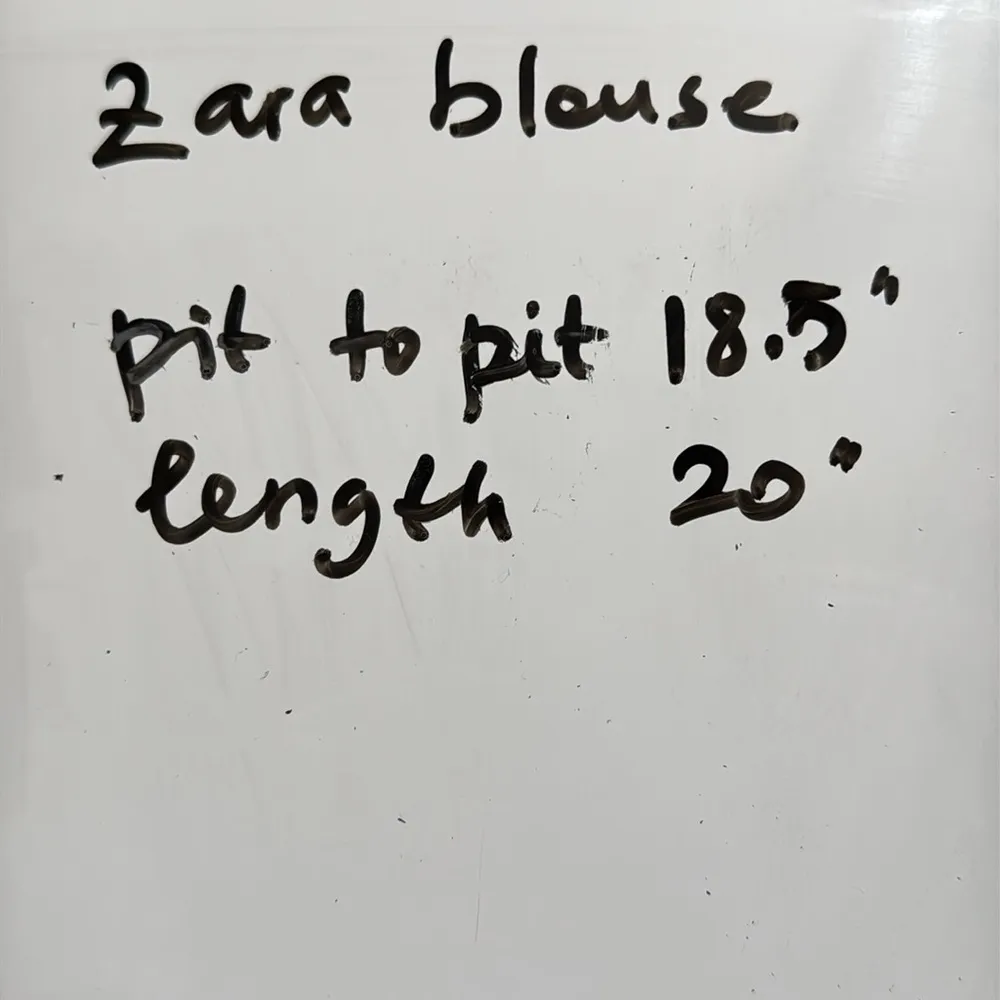 Zara blouse
pit to pit 18.5"
length 20"